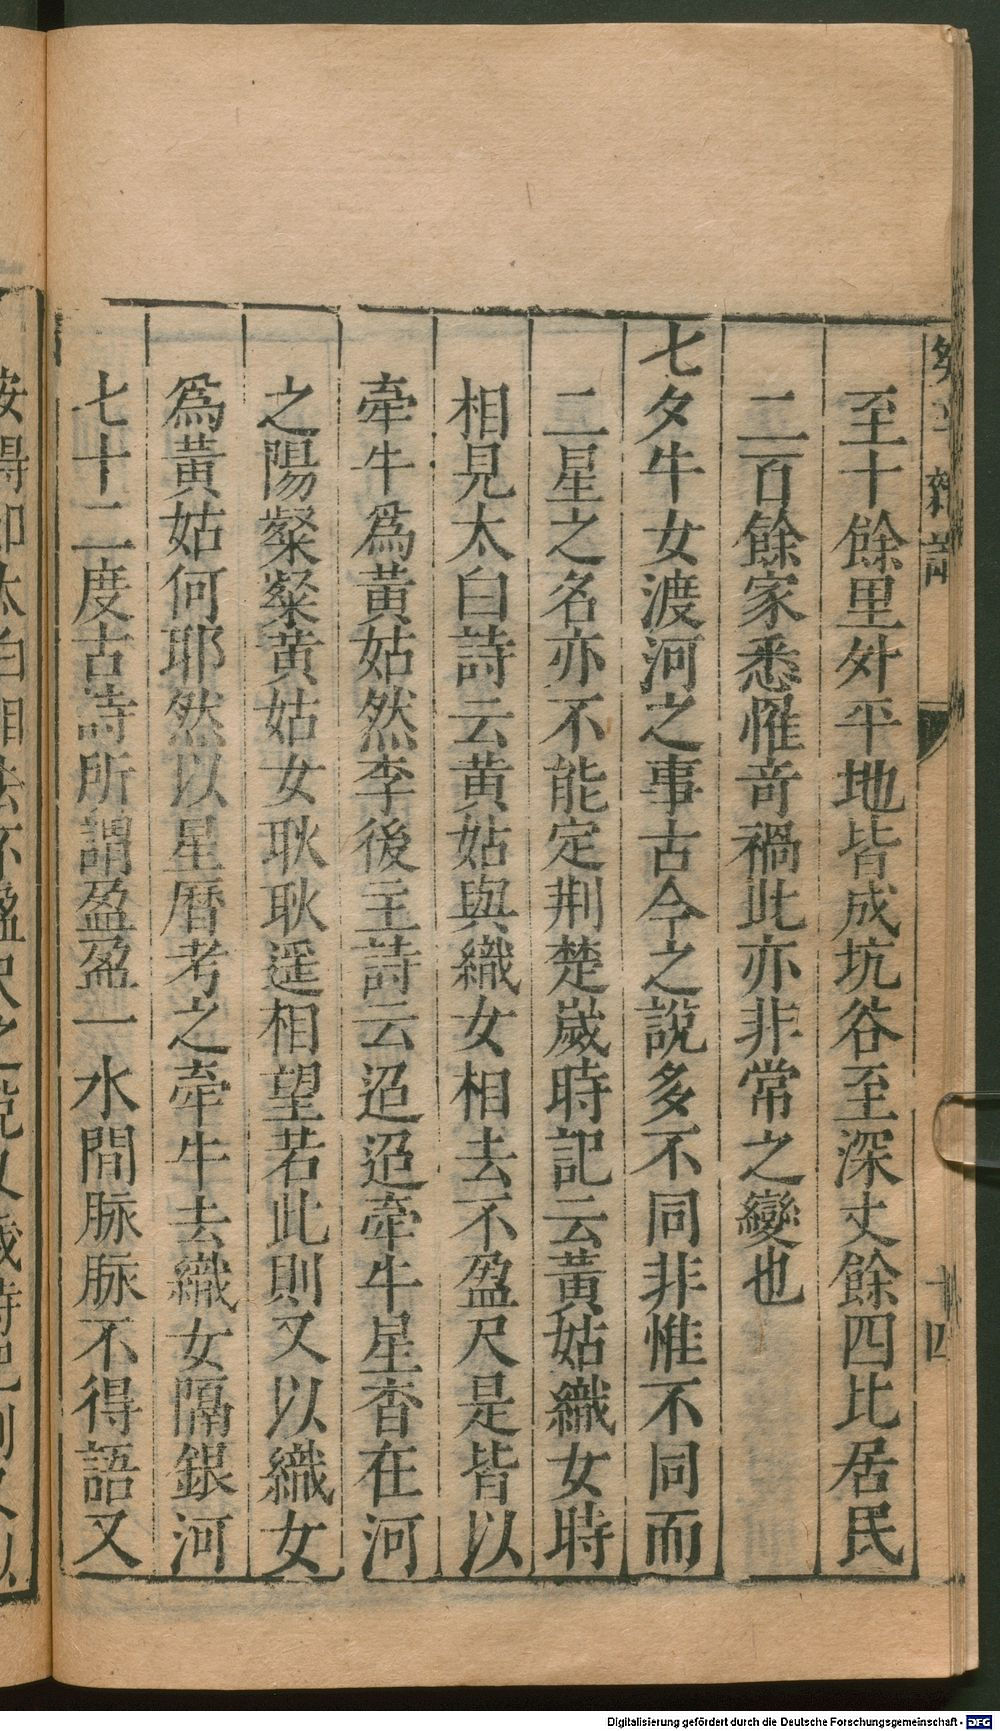 至十餘里外平地皆成坑谷至深丈餘四比居民
二百餘家悉罹奇禍此亦非常之變也
七夕牛女渡河之事古今之說多不同非惟不同而
二星之名亦不能定荆楚嵗時記云黃姑織女時
相見太白詩云黄姑與織女相去不盈尺是皆以
牽牛為黃姑然李後主詩云迢迢牽牛星杳在河
之陽粲粲黄姑女耿耿遥相望若此則又以織女
為黃姑何耶然以星曆考之牽牛去織女隔銀河
七十二度古詩所謂盈盈一水間脉脉不得語又
按得卽太白相去不盈尺之
Digitalisierung gefördert durch die Deutsche Forschungsgemeinschaft - DFG